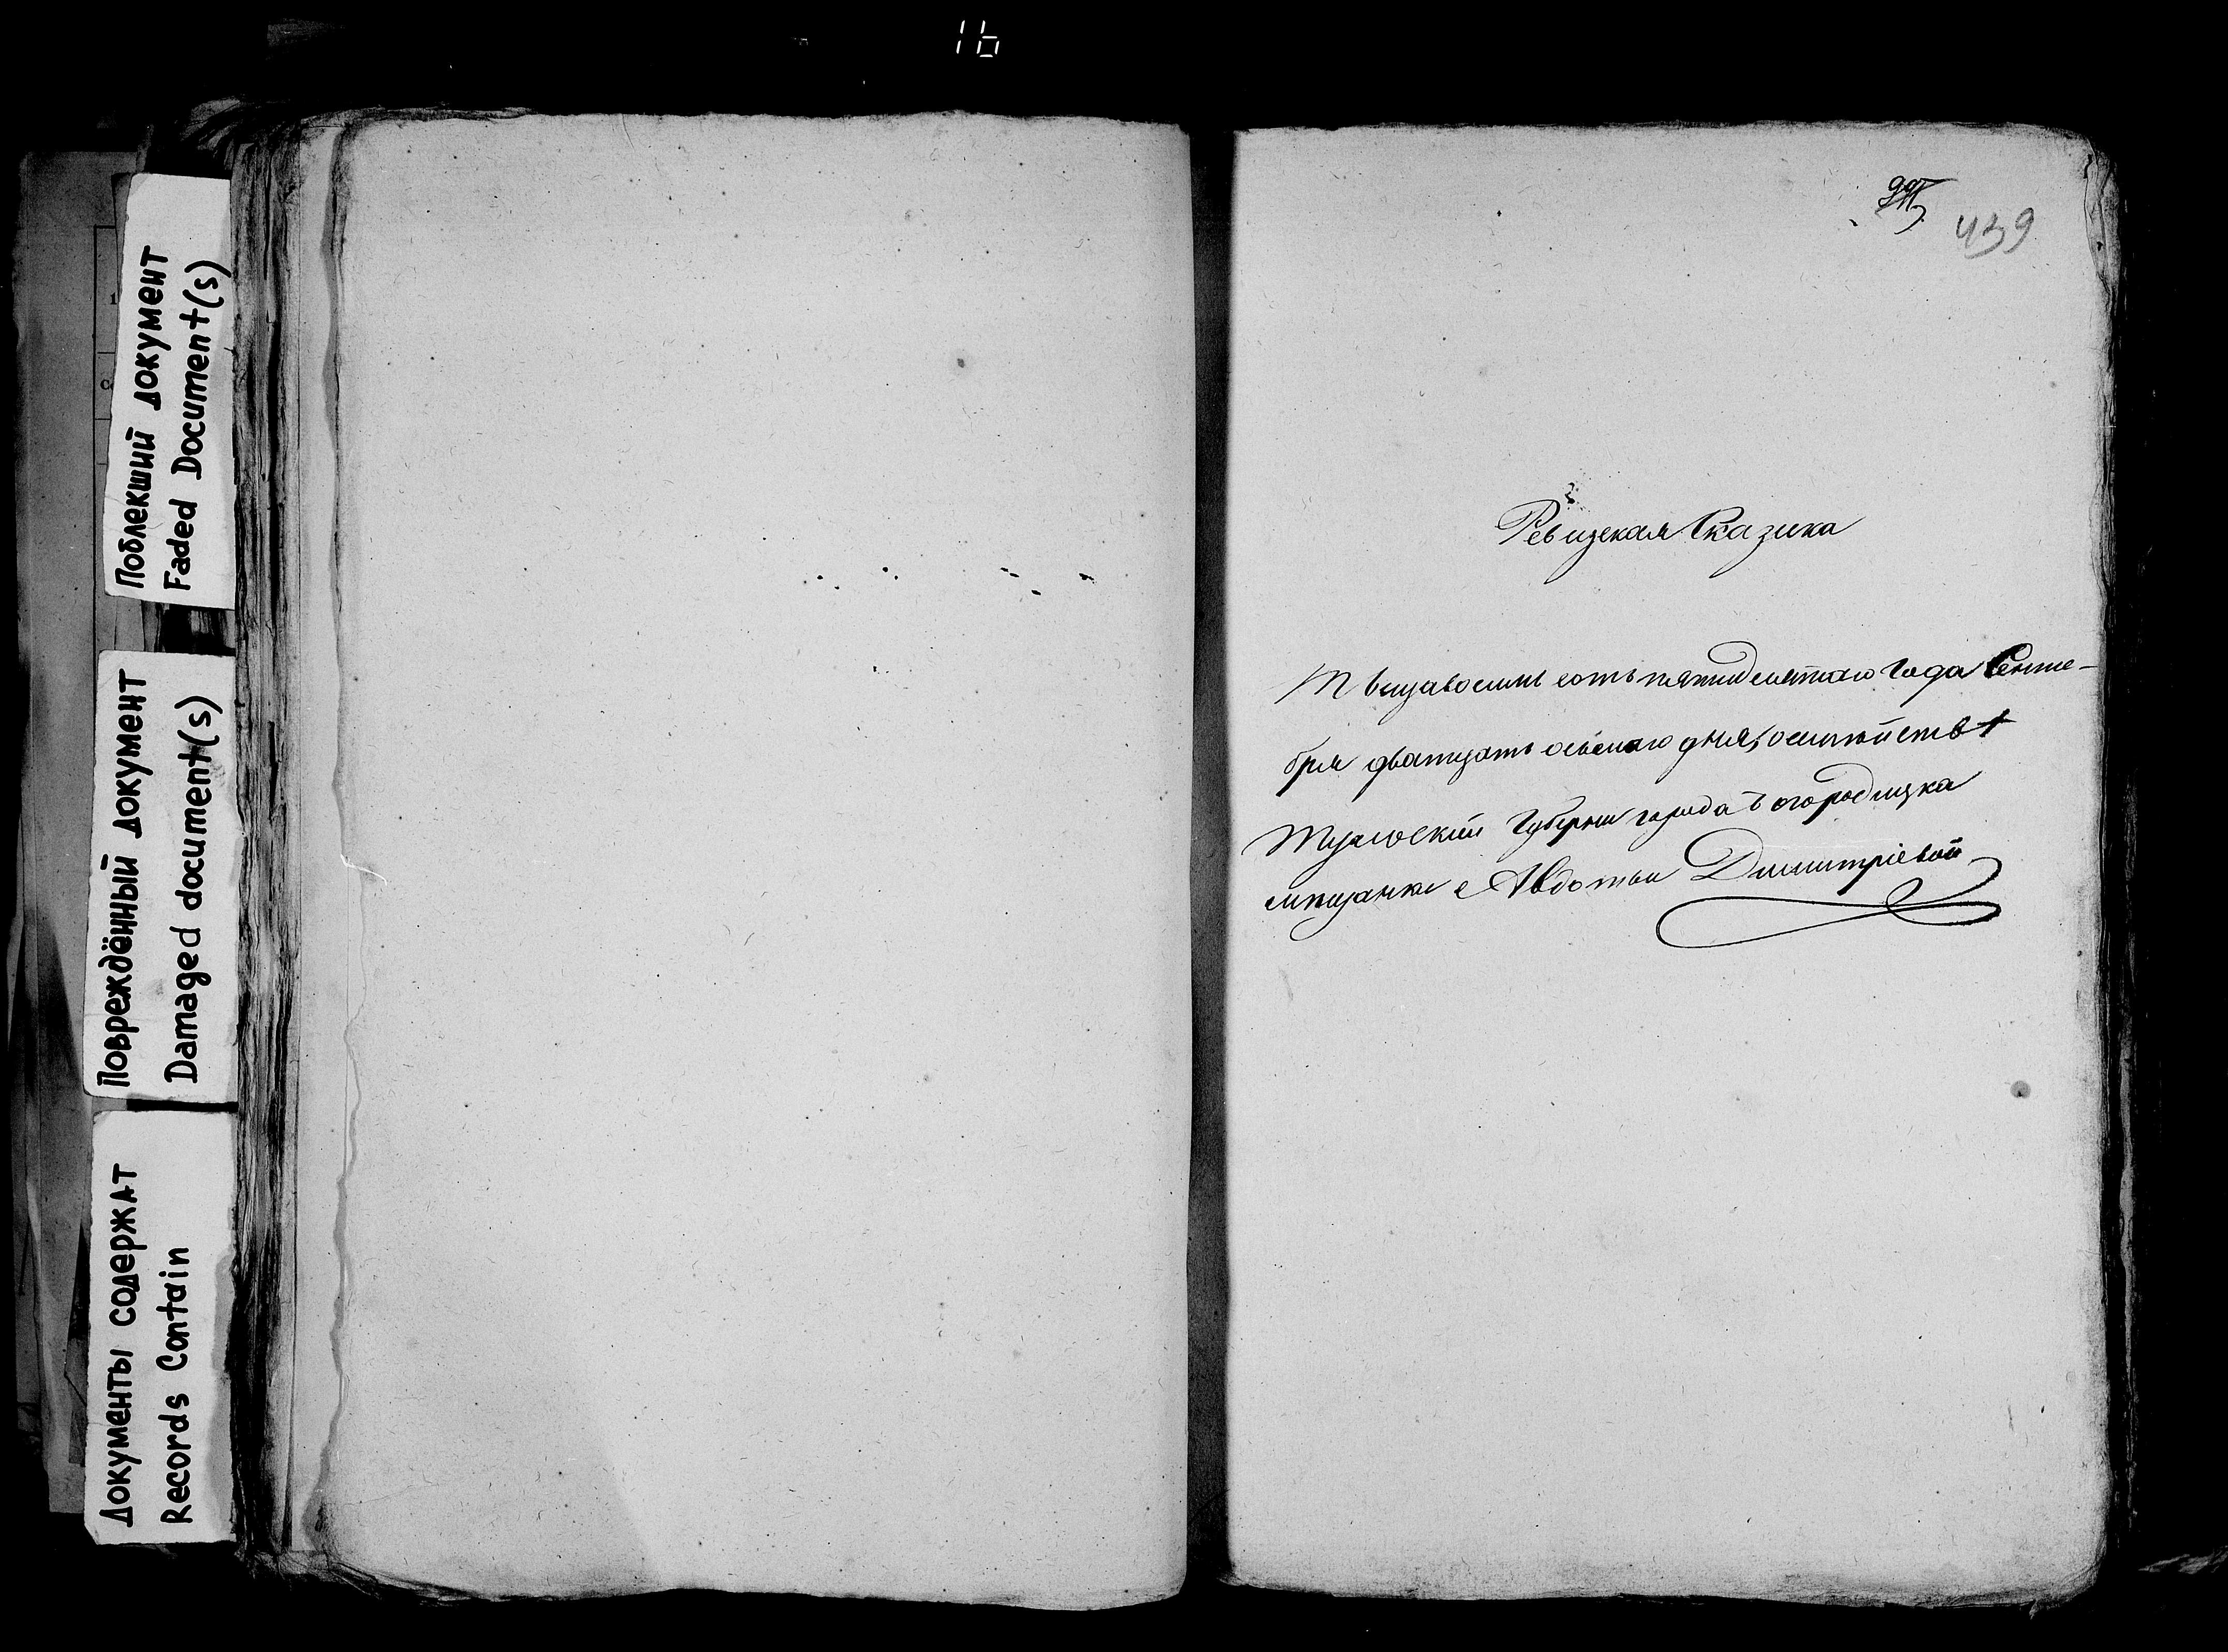 16
Поблекший документ
Faded Document(s)
Повреждённый документ
Damaged document(s)
Документы содержат
Records Contain
439
Ревизская Сказка
Тысяча восемь сотъ пятидесятаго Года Сентя-
бря дватцать осьмаго дня, о семѣйстве
Тульской Губерни города Богородицка
мѣщанки Авдотьи Димитріевой